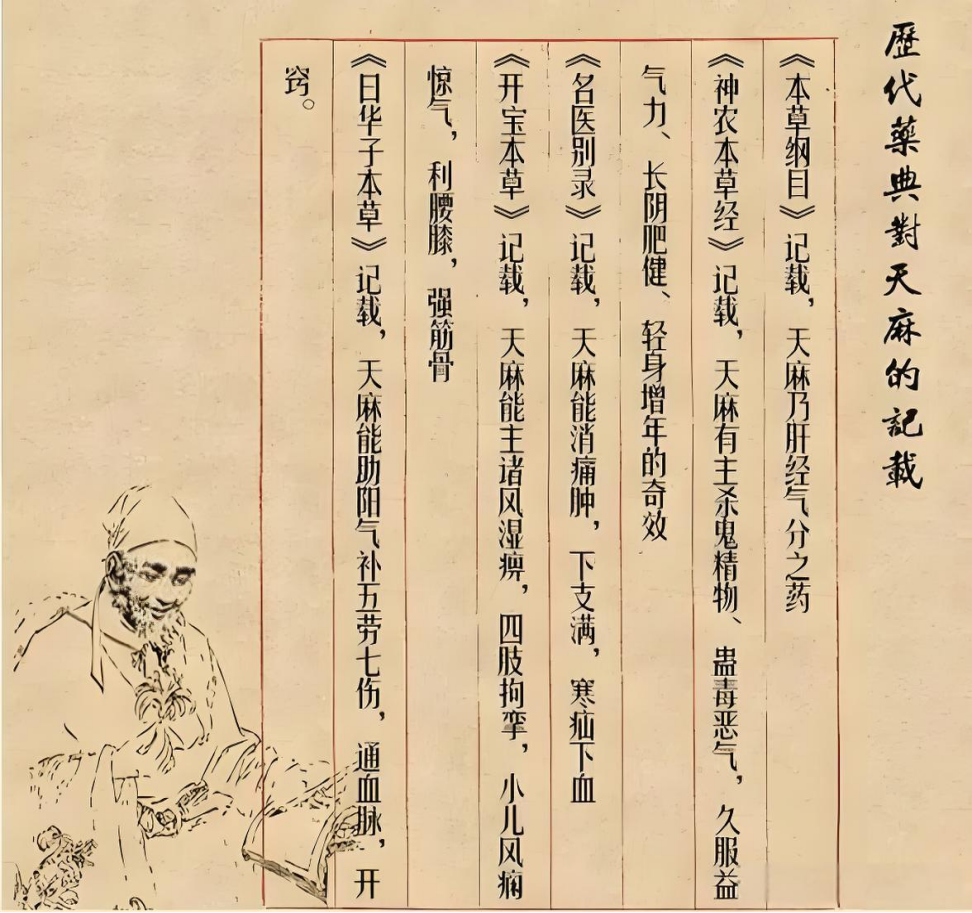 歷代藥典對天麻的記載
《本草纲目》记载，天麻乃肝经气分之药
《神农本草经》记载，天麻有主杀鬼精物、蛊毒恶气，久服益
气力、长阴肥健、轻身增年的奇效
《名医别录》记载，天麻能消痈肿，下支满，寒疝下血
《开宝本草》记载，天麻能主诸风湿痹，四肢拘挛，小儿风痫
惊气，利腰膝，强筋骨
《日华子本草》记载，天麻能助阳气补五劳七伤，通血脉，开
窍。